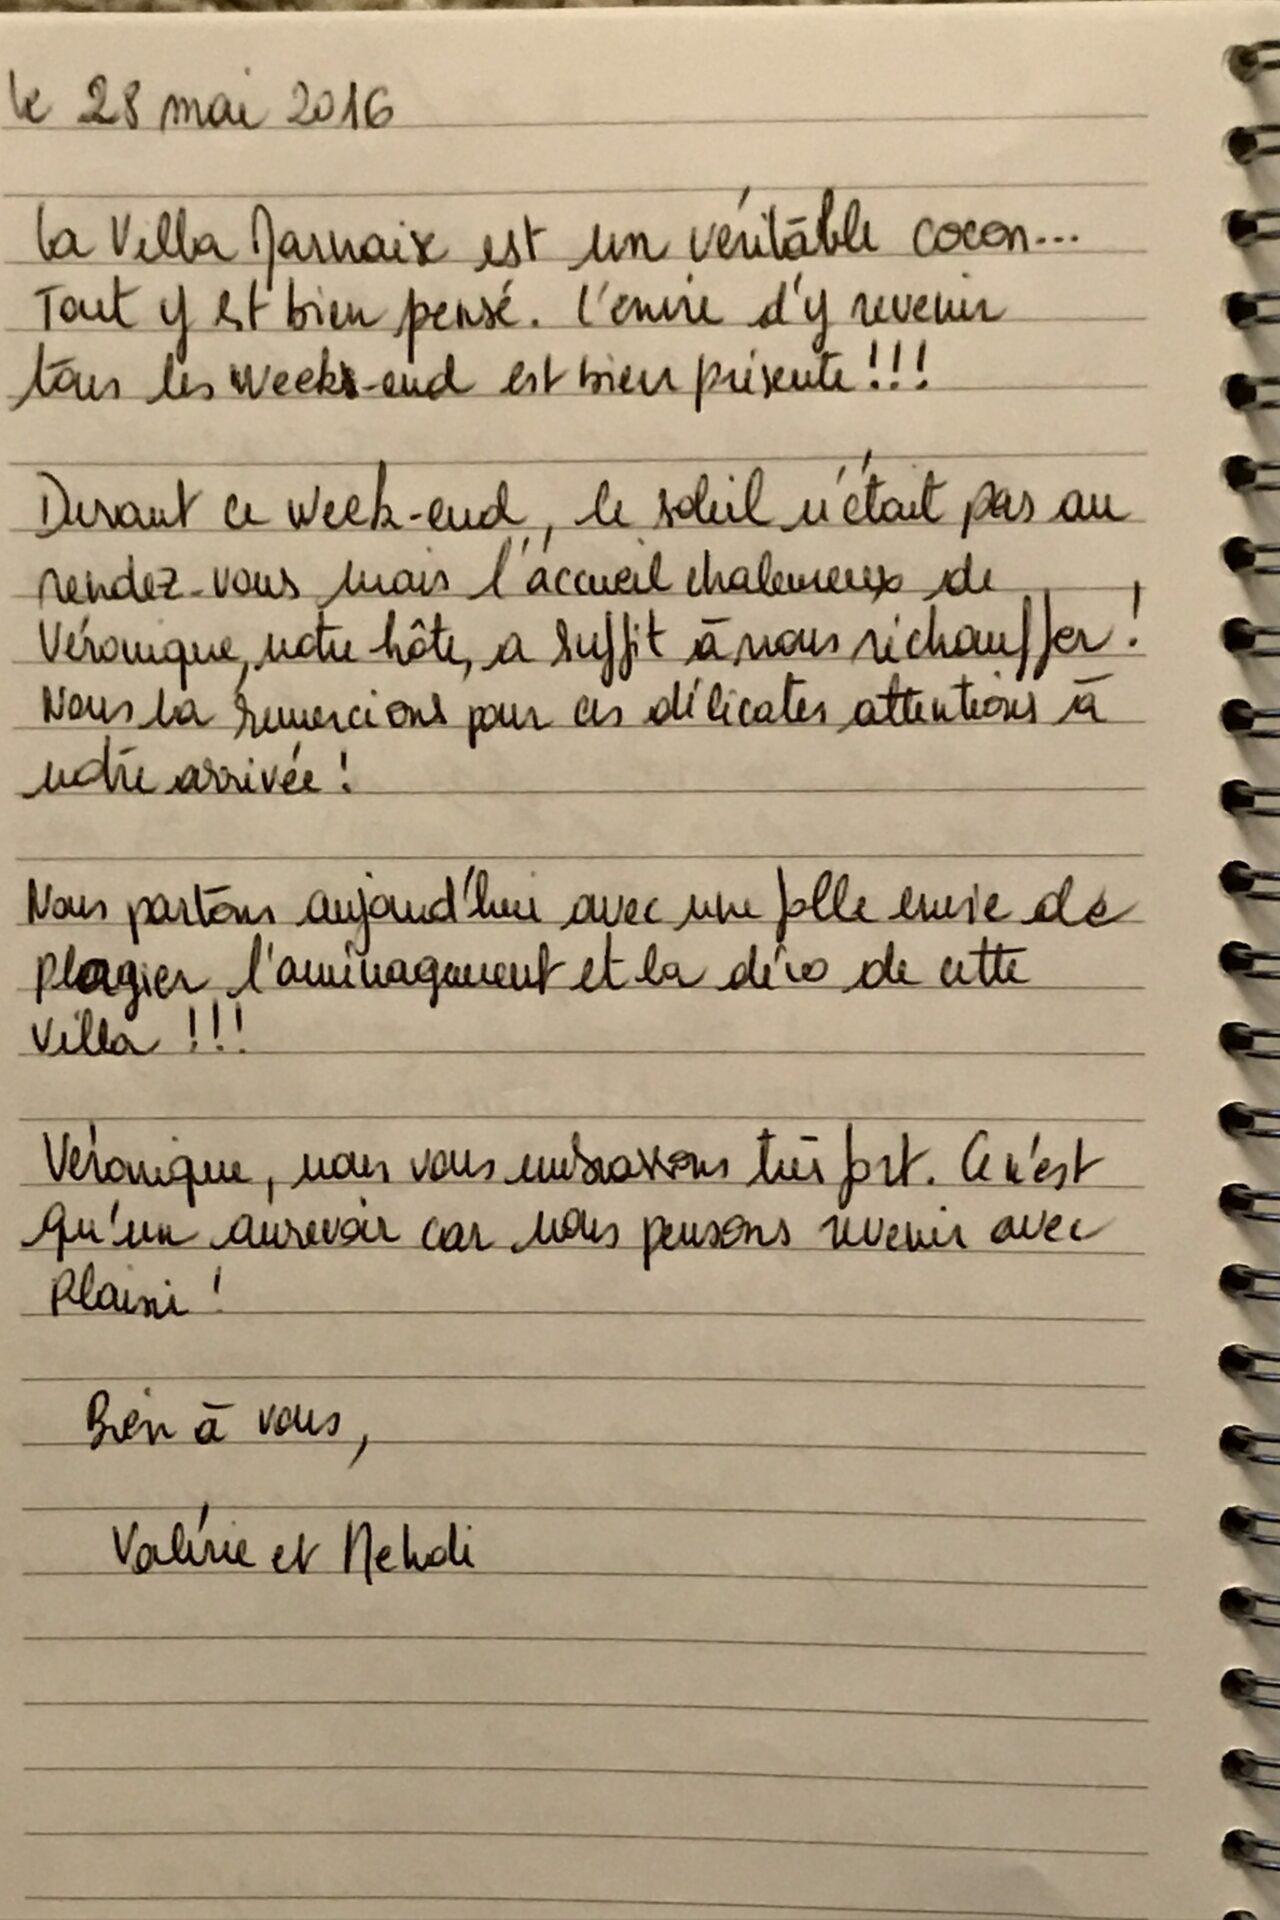 le 28 mai 2016
La Villa Marnaix est un véritable cocon...
Tout y est bien pensé. L'envie d'y revenir
tous les week-end est bien présente !!!
Durant ce week-end, le soleil n'était pas au
rendez-vous mais l'accueil chaleureux de
Véronique, notre hôte, a suffit à nous réchauffer !
Nous la remercions pour ces délicates attentions à
notre arrivée !
Nous partons aujourd'hui avec une folle envie de
plagier l'aménagement et la déco de cette
Villa !!!
Véronique, nous vous embrassons très fort. Ce n'est
qu'un aurevoir car nous pensons revenir avec
plaisir !
Bien à vous,
Valérie et Mehdi